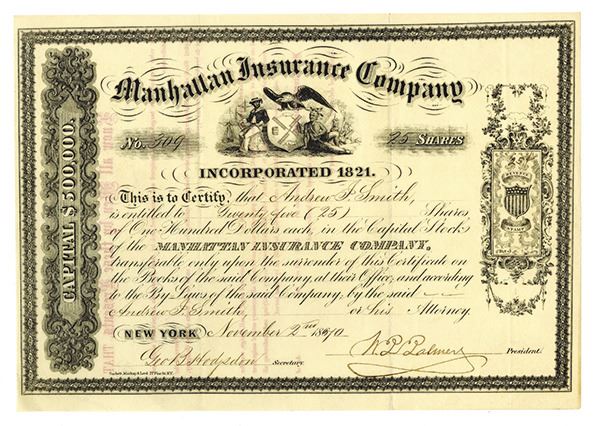 Manhattan Insurance Company
No. 309 25 SHARES
INCORPORATED 1821.
This is to Certify, that Andrew F. Smith,
is entitled to Twenty five (25) Shares,
of One Hundred Dollars each, in the Capital Stock
of the MANHATTAN INSURANCE COMPANY,
transferable only upon the surrender of this Certificate on
the Books of the said Company, at their Office, and according
to the By Laws of the said Company, by the said
Andrew F. Smith, or his Attorney.
NEW YORK November 2nd 1870
Geo. B. Hodgson Secretary. W. P. Palmer President.
CAPITAL $500,000.
25
REVENUE
STAMP